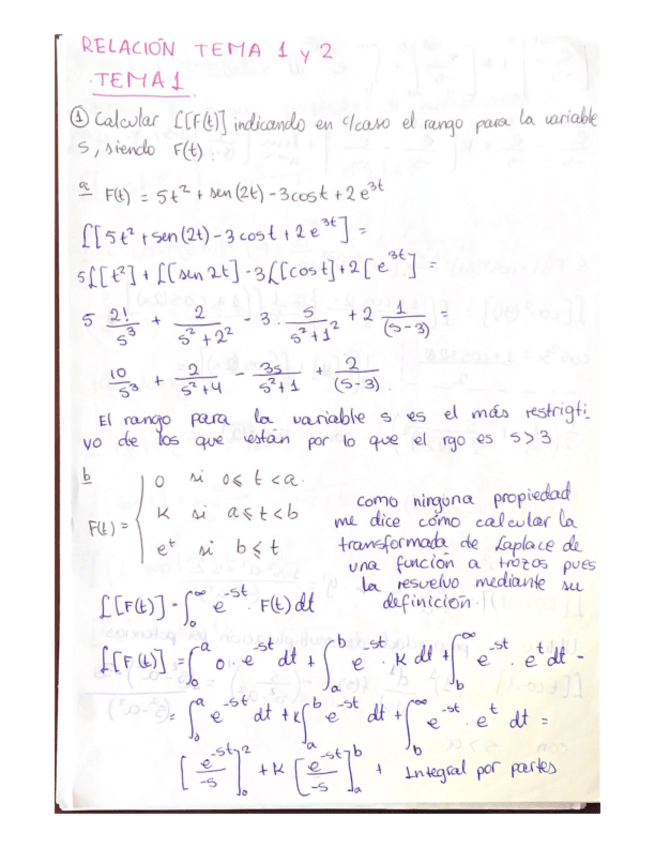 RELACIÓN TEMA 1 y 2
. TEMA 1.
① Calcular L[F(t)] indicando en c/caso el rango para la variable
s, siendo F(t):
a F(t) = 5t² + sen(2t) - 3cost + 2e^3t
L[5t² + sen(2t) - 3cost + 2e^3t] =
5L[t²] + L[sen 2t] - 3L[cost] + 2[e^3t] =
5 2!/s³ + 2/(s²+2²) - 3· s/(s²+1²) + 2 1/(s-3) =
10/s³ + 2/(s²+4) - 3s/(s²+1) + 2/(s-3).
El rango para la variable s es el más restrigti-
vo de los que están por lo que el rgo es s>3
b
F(t) = { 0 si 0≤t<a.
K si a≤t<b
e^t si b≤t
como ninguna propiedad
me dice cómo calcular la
transformada de Laplace de
una función a trozos pues
la resuelvo mediante su
definición.
L[F(t)] = ∫₀^∞ e^-st · F(t) dt
L[F(t)] = ∫₀^a 0·e^-st dt + ∫_a^b e^-st · K dt + ∫_b^∞ e^-st · e^t dt =
= ∫₀^a e^-st dt + K∫_a^b e^-st dt + ∫_b^∞ e^-st · e^t dt =
[e^-st/-s]₀^a + K[e^-st/-s]_a^b + Integral por partes